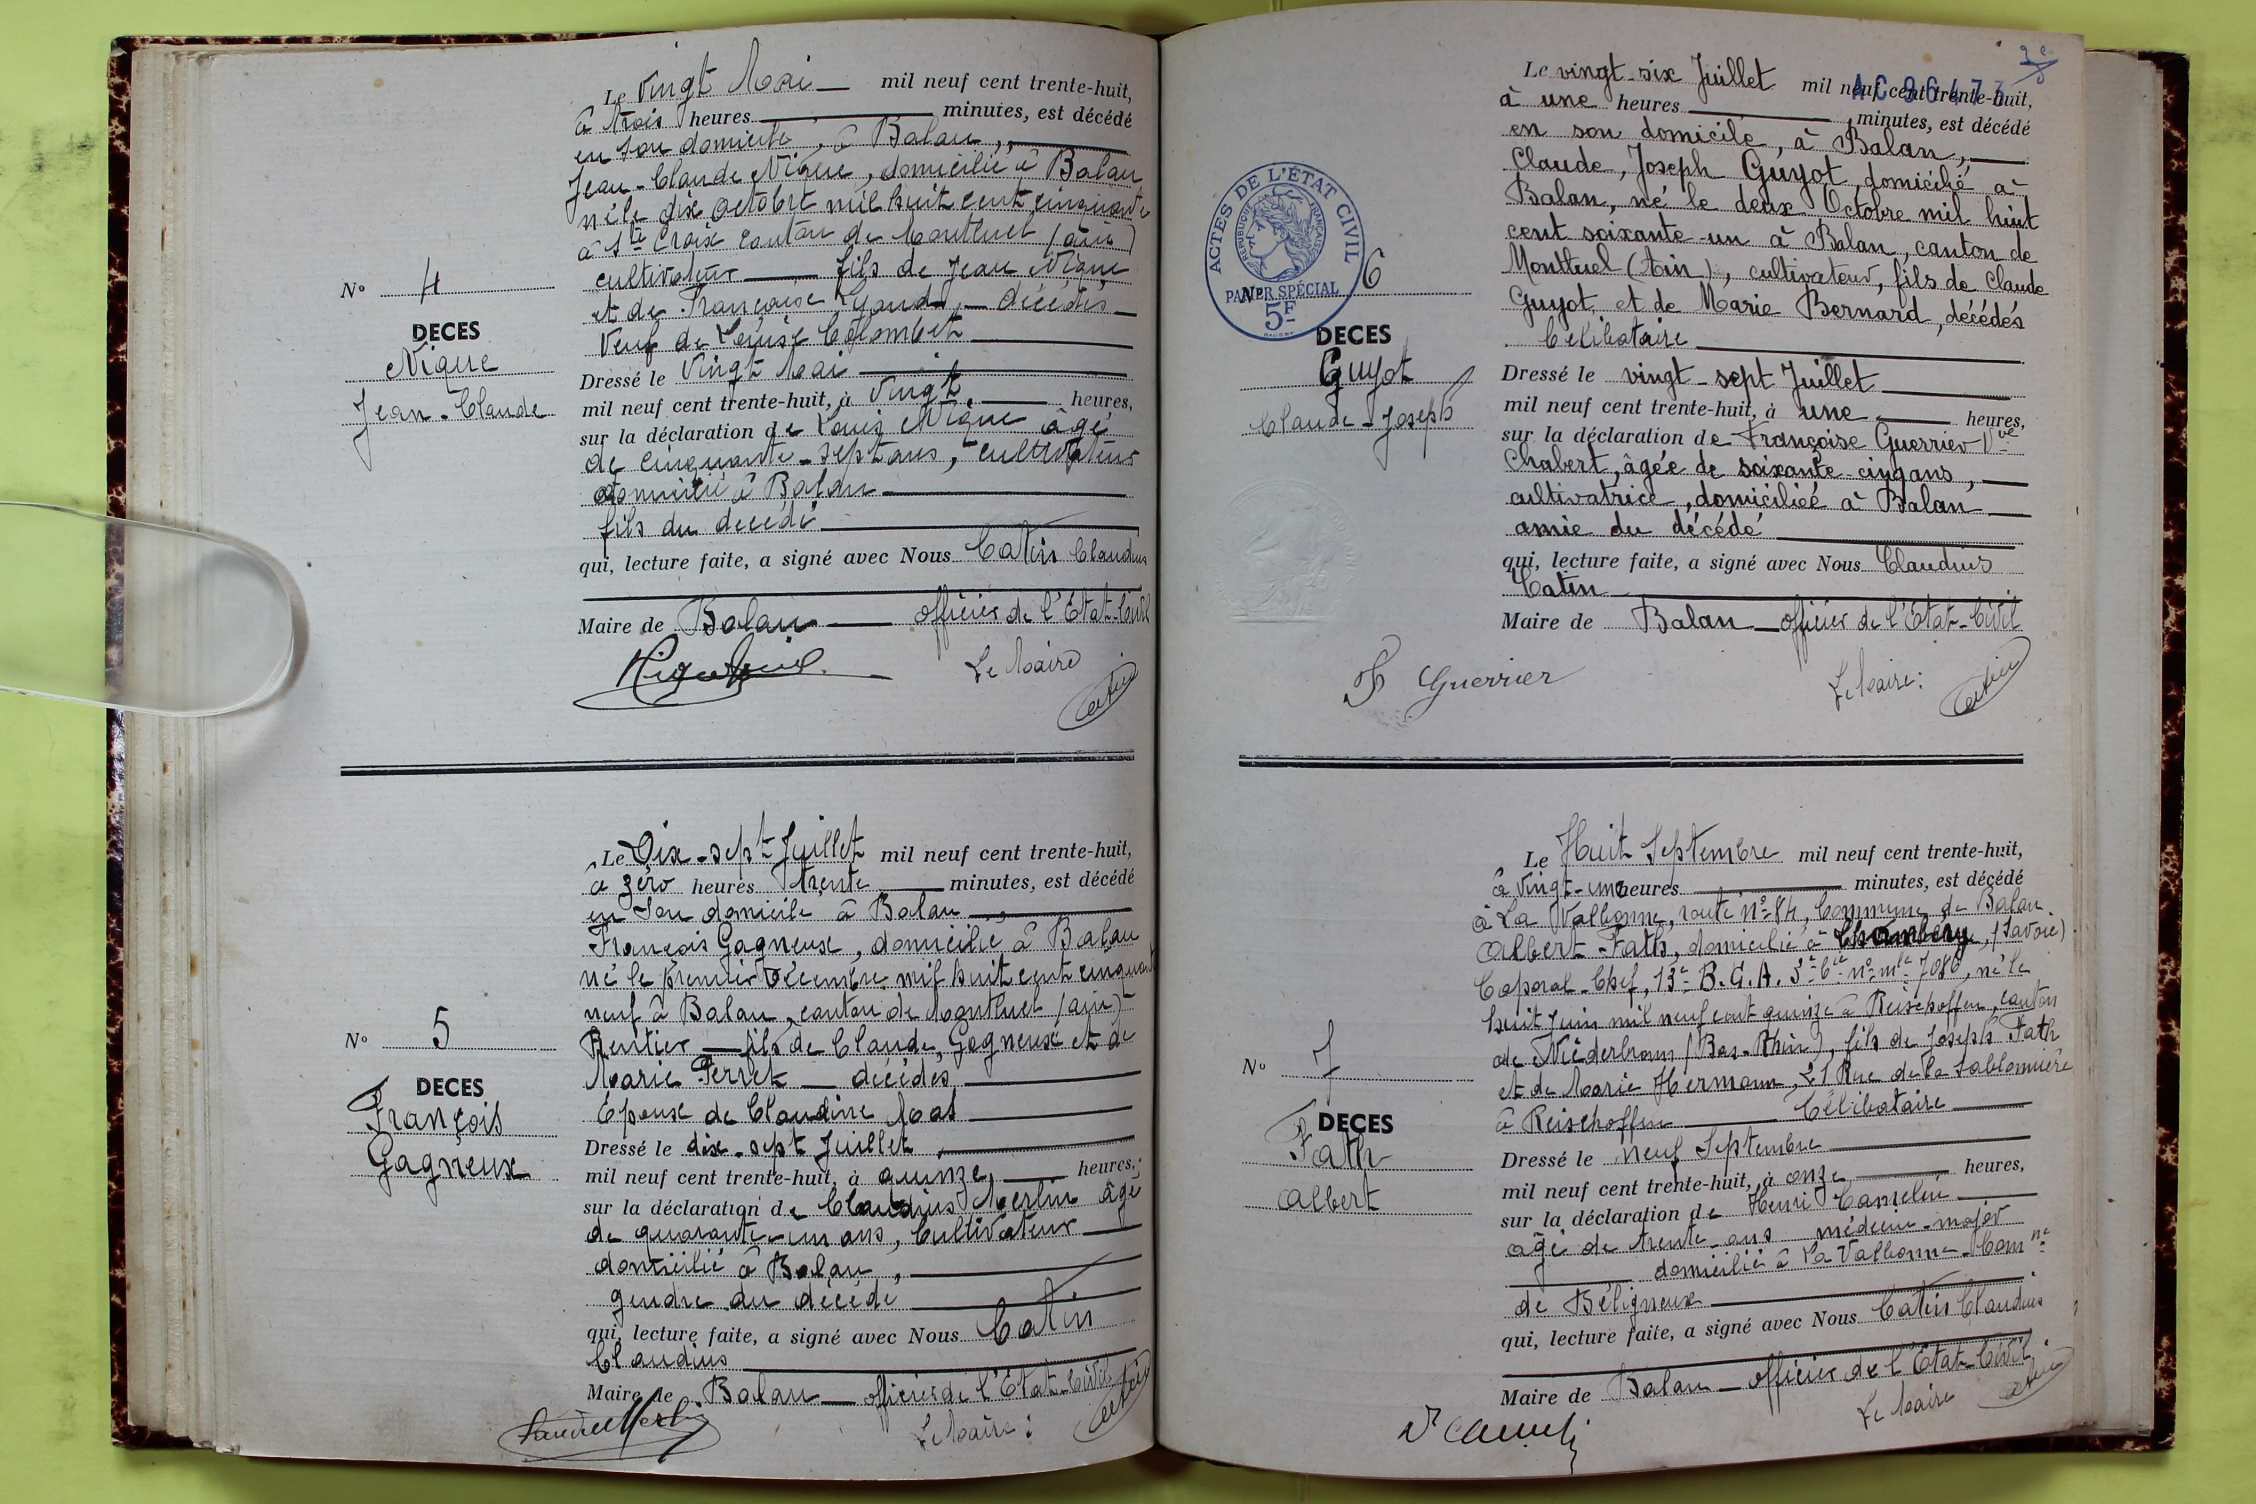 Le vingt Mai mil neuf cent trente-huit,
à trois heures minutes, est décédé
en son domicile, à Balan,
Jean-Claude Nique, domicilié à Balan
né le dix octobre mil huit cent cinquante
à Ste Croix canton de Montluel (Ain)
cultivateur fils de Jean Nique
et de Françoise décédés
Veuf de Louise Colombet
Dressé le Vingt Mai
mil neuf cent trente-huit, à Vingt heures,
sur la déclaration de Louis Nique âgé
de cinquante-sept ans, cultivateur
domicilié à Balan
fils du décédé
qui, lecture faite, a signé avec Nous Catin Claudius
Maire de Balan officier de l'Etat-Civil
Le Maire
Catin
No 4
DECES
Nique
Jean-Claude
Le Dix-sept Juillet mil neuf cent trente-huit,
à zéro heures trente minutes, est décédé
en son domicile à Balan
François Gagneux, domicilié à Balan
né le premier Décembre mil huit cent cinquante
neuf à Balan, canton de Montluel (Ain)
Rentier fils de Claude, Gagneux et de
Marie Perret décédés
Epoux de Claudine Mas
Dressé le dix-sept Juillet
mil neuf cent trente-huit, à quinze heures,
sur la déclaration de Claudius Merlin âgé
de quarante-un ans, Cultivateur
domicilié à Balan,
gendre du décédé
qui, lecture faite, a signé avec Nous Catin
Claudius
Maire de Balan officier de l'Etat-Civil
Le Maire:
Catin
No 5
DECES
François
Gagneux
2e
AC 96473
Le vingt-six Juillet mil neuf cent trente-huit,
à une heures minutes, est décédé
en son domicile, à Balan,
Claude, Joseph Guyot domicilié à
Balan, né le deux Octobre mil huit
cent soixante-un à Balan, canton de
Montluel (Ain), cultivateur, fils de Claude
Guyot et de Marie Bernard, décédés
Célibataire
Dressé le vingt-sept Juillet
mil neuf cent trente-huit, à une heures,
sur la déclaration de Françoise Guerrier Vve
Chabert, âgée de soixante-cinq ans,
cultivatrice, domiciliée à Balan
amie du décédé
qui, lecture faite, a signé avec Nous Claudius
Catin
Maire de Balan officier de l'Etat-Civil
F Guerrier
Le Maire:
Catin
ACTES DE L'ÉTAT CIVIL
RÉPUBLIQUE FRANÇAISE
PAPIER SPÉCIAL
5F
No 6
DECES
Guyot
Claude-Joseph
Le Huit Septembre mil neuf cent trente-huit,
à vingt-une heures minutes, est décédé
à La Valbonne, route no 84, Commune de Balan
Albert Fath, domicilié à Chambéry, (Savoie)
Caporal-Chef, 13e B.C.A. 3e Cie no mle 7086, né le
huit Juin mil neuf cent quinze à Reischoffen, canton
de Niederbronn (Bas-Rhin), fils de Joseph Fath
et de Marie Hermann, 21 Rue de la Sablonnière
à Reischoffen Célibataire
Dressé le neuf Septembre
mil neuf cent trente-huit, à onze heures,
sur la déclaration de Henri
âgé de trente ans médecin-major
domicilié à La Valbonne Comne
de Béligneux
qui, lecture faite, a signé avec Nous Catin Claudius
Maire de Balan officier de l'Etat-Civil
Le Maire
Catin
No 7
DECES
Fath
Albert